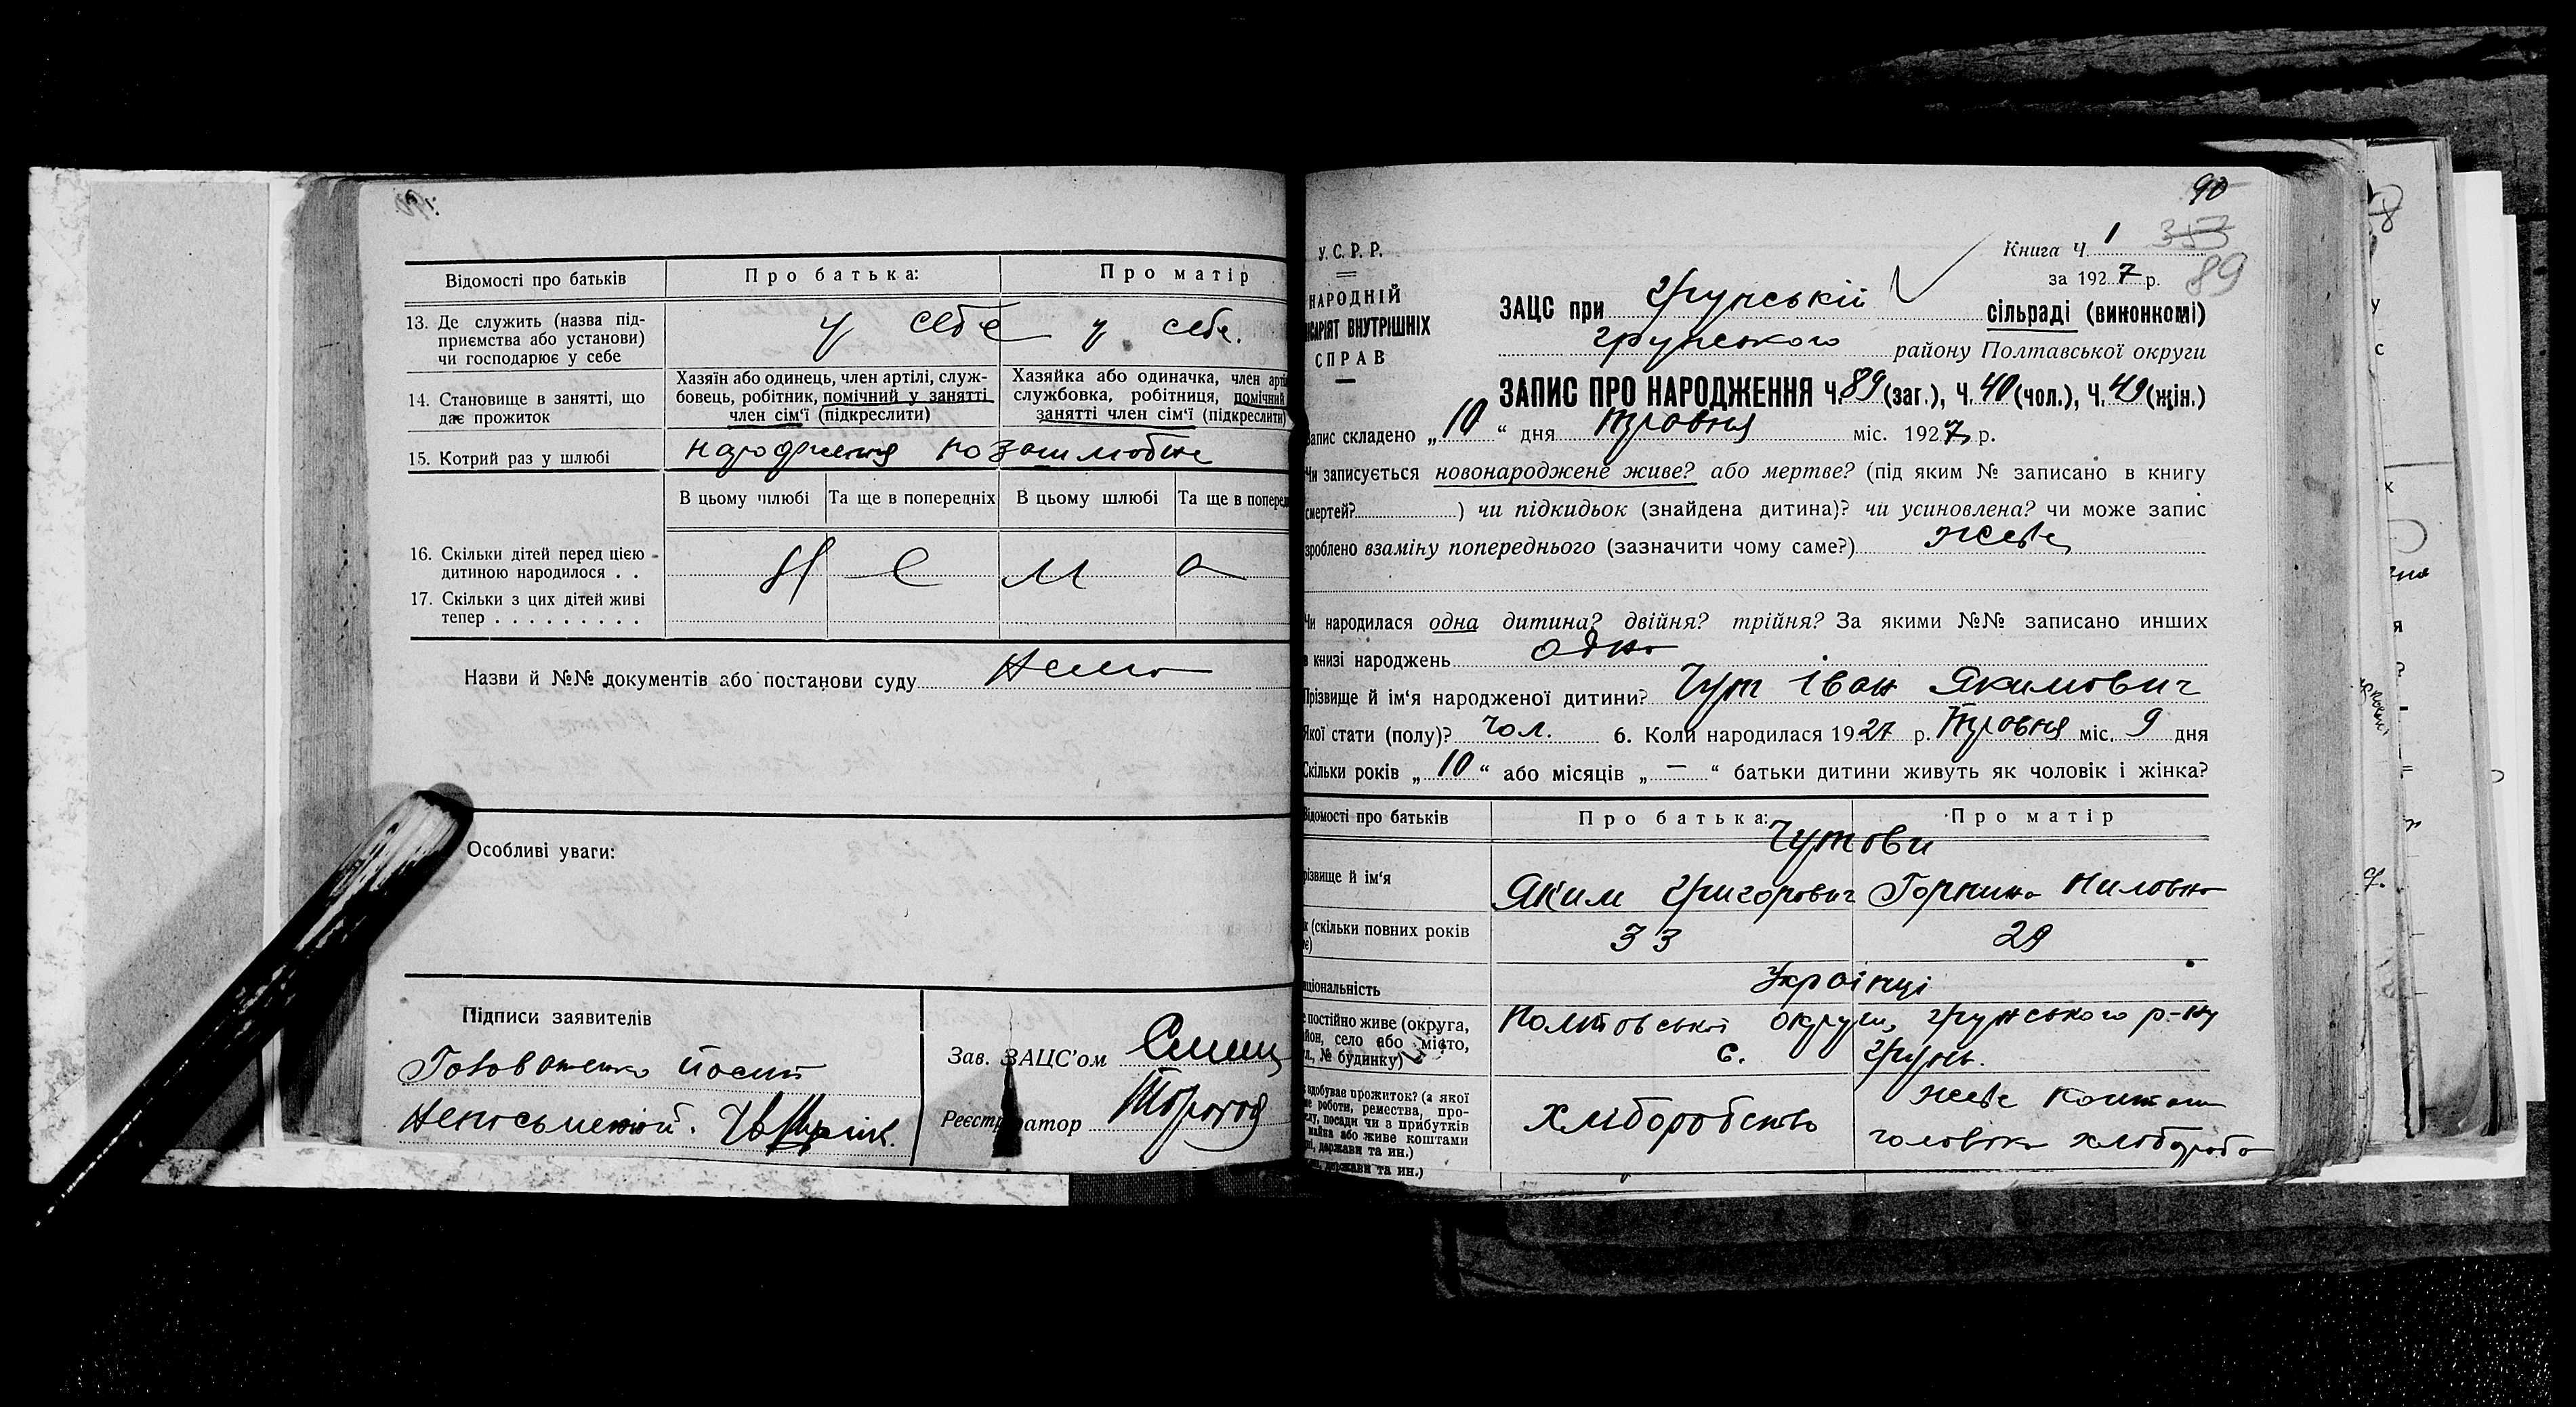 Відомості про батьків
Про батька:
Про матір
13. Де служить (назва під-
приємства або установи)
чи господарює у себе
у себе
у себе.
14. Становище в занятті, що
дає прожиток
Хазяїн або одинець, член артілі, служ-
бовець, робітник, помічний у занятті
член сім'ї (підкреслити)
Хазяйка або одиначка, член арті
службовка, робітниця, помічний
занятті член сім'ї (підкреслити)
15. Котрий раз у шлюбі
народження позашлюбне
В цьому шлюбі
Та ще в попередніх
В цьому шлюбі
Та ще в поперед
16. Скільки дітей перед цією
дитиною народилося . .
Нема
17. Скільки з цих дітей живі
тепер . . . . . . . . .
Назви й №№ документів або постанови суду Нема
Особливі уваги:
Підписи заявителів
Головатенко Йосип
Неписьменний.
Зав. ЗАЦС'ом
Реєстратор
90
У.С.Р.Р.
НАРОДНІЙ
ІСАРІЯТ ВНУТРІШНІХ
СПРАВ
Книга Ч. 1
353
за 1927 р.
89
ЗАЦС при Грунській сільраді (виконкомі)
Грунського району Полтавської округи
ЗАПИС ПРО НАРОДЖЕННЯ Ч. 89 (заг.), Ч. 40 (чол.), Ч. 49 (жін.)
Запис складено „10“ дня травня міс. 1927 р.
Чи записується новонароджене живе? або мертве? (під яким № записано в книгу
смертей? ) чи підкидьок (знайдена дитина)? чи усиновлена? чи може запис
зроблено взаміну попереднього (зазначити чому саме?) живе
Чи народилася одна дитина? двійня? трійня? За якими №№ записано инших
в книзі народжень одна
Прізвище й ім'я народженої дитини? Чут Іван Якимович
Якої стати (полу)? чол. 6. Коли народилася 1927 р. Травня міс. 9 дня
Скільки років „10“ або місяців „—“ батьки дитини живуть як чоловік і жінка?
Відомості про батьків
Про батька:
Про матір
Чутови
різвище й ім'я
Яким Григорович
Горпина Ниловна
к (скільки повних років
є)
33
29
аціональність
Українці
е постійно живе (округа,
йон, село або місто,
л., № будинку)
Полтовської округи, Грунського р-ну
с. Грунь.
здобуває прожиток? (з якої
ме роботи, ремества, про-
су, посади чи з прибутків
майна або живе коштами
ні, держави та ин.)
хліборобство
живе коштом
чоловіка хлібороба
держави та ин.)